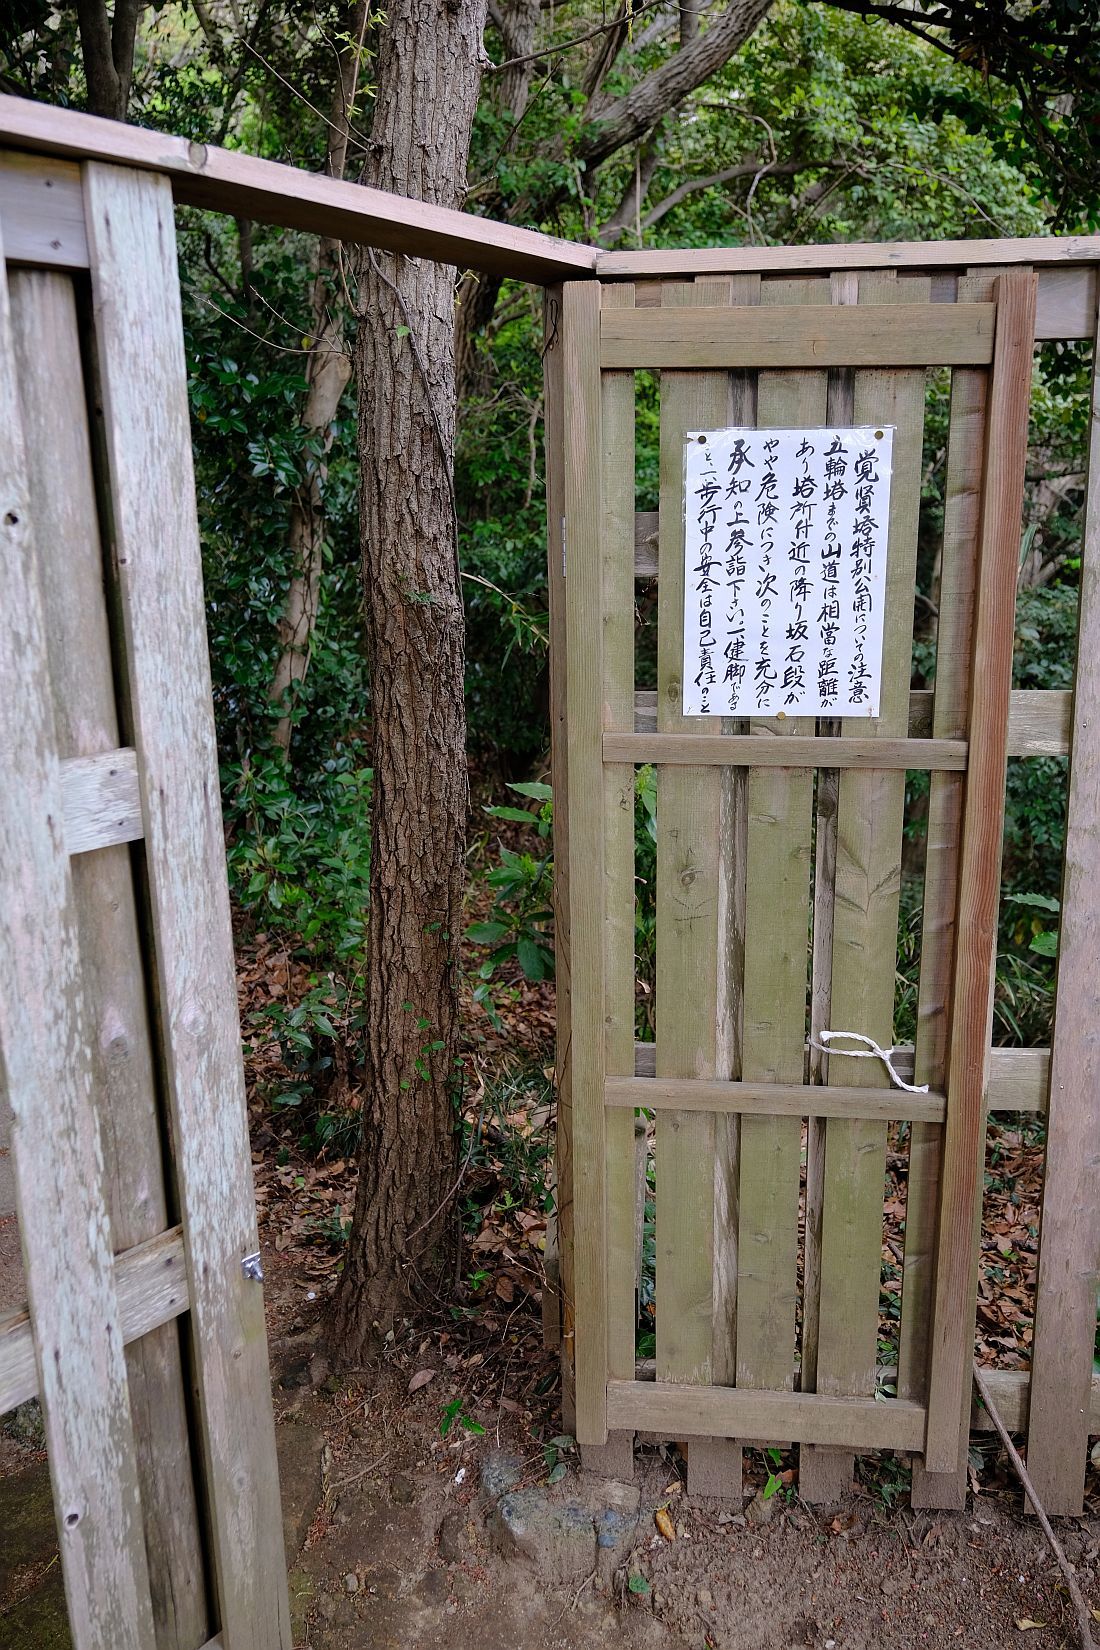 覚賢塔特別公開についての注意
五輪塔までの山道は相當な距離が
あり塔所付近の降り坂石段が
やや危険につき次のことを充分に
承知の上参詣下さい一、健脚である
こと、一、歩行中の安全は自己責任のこと